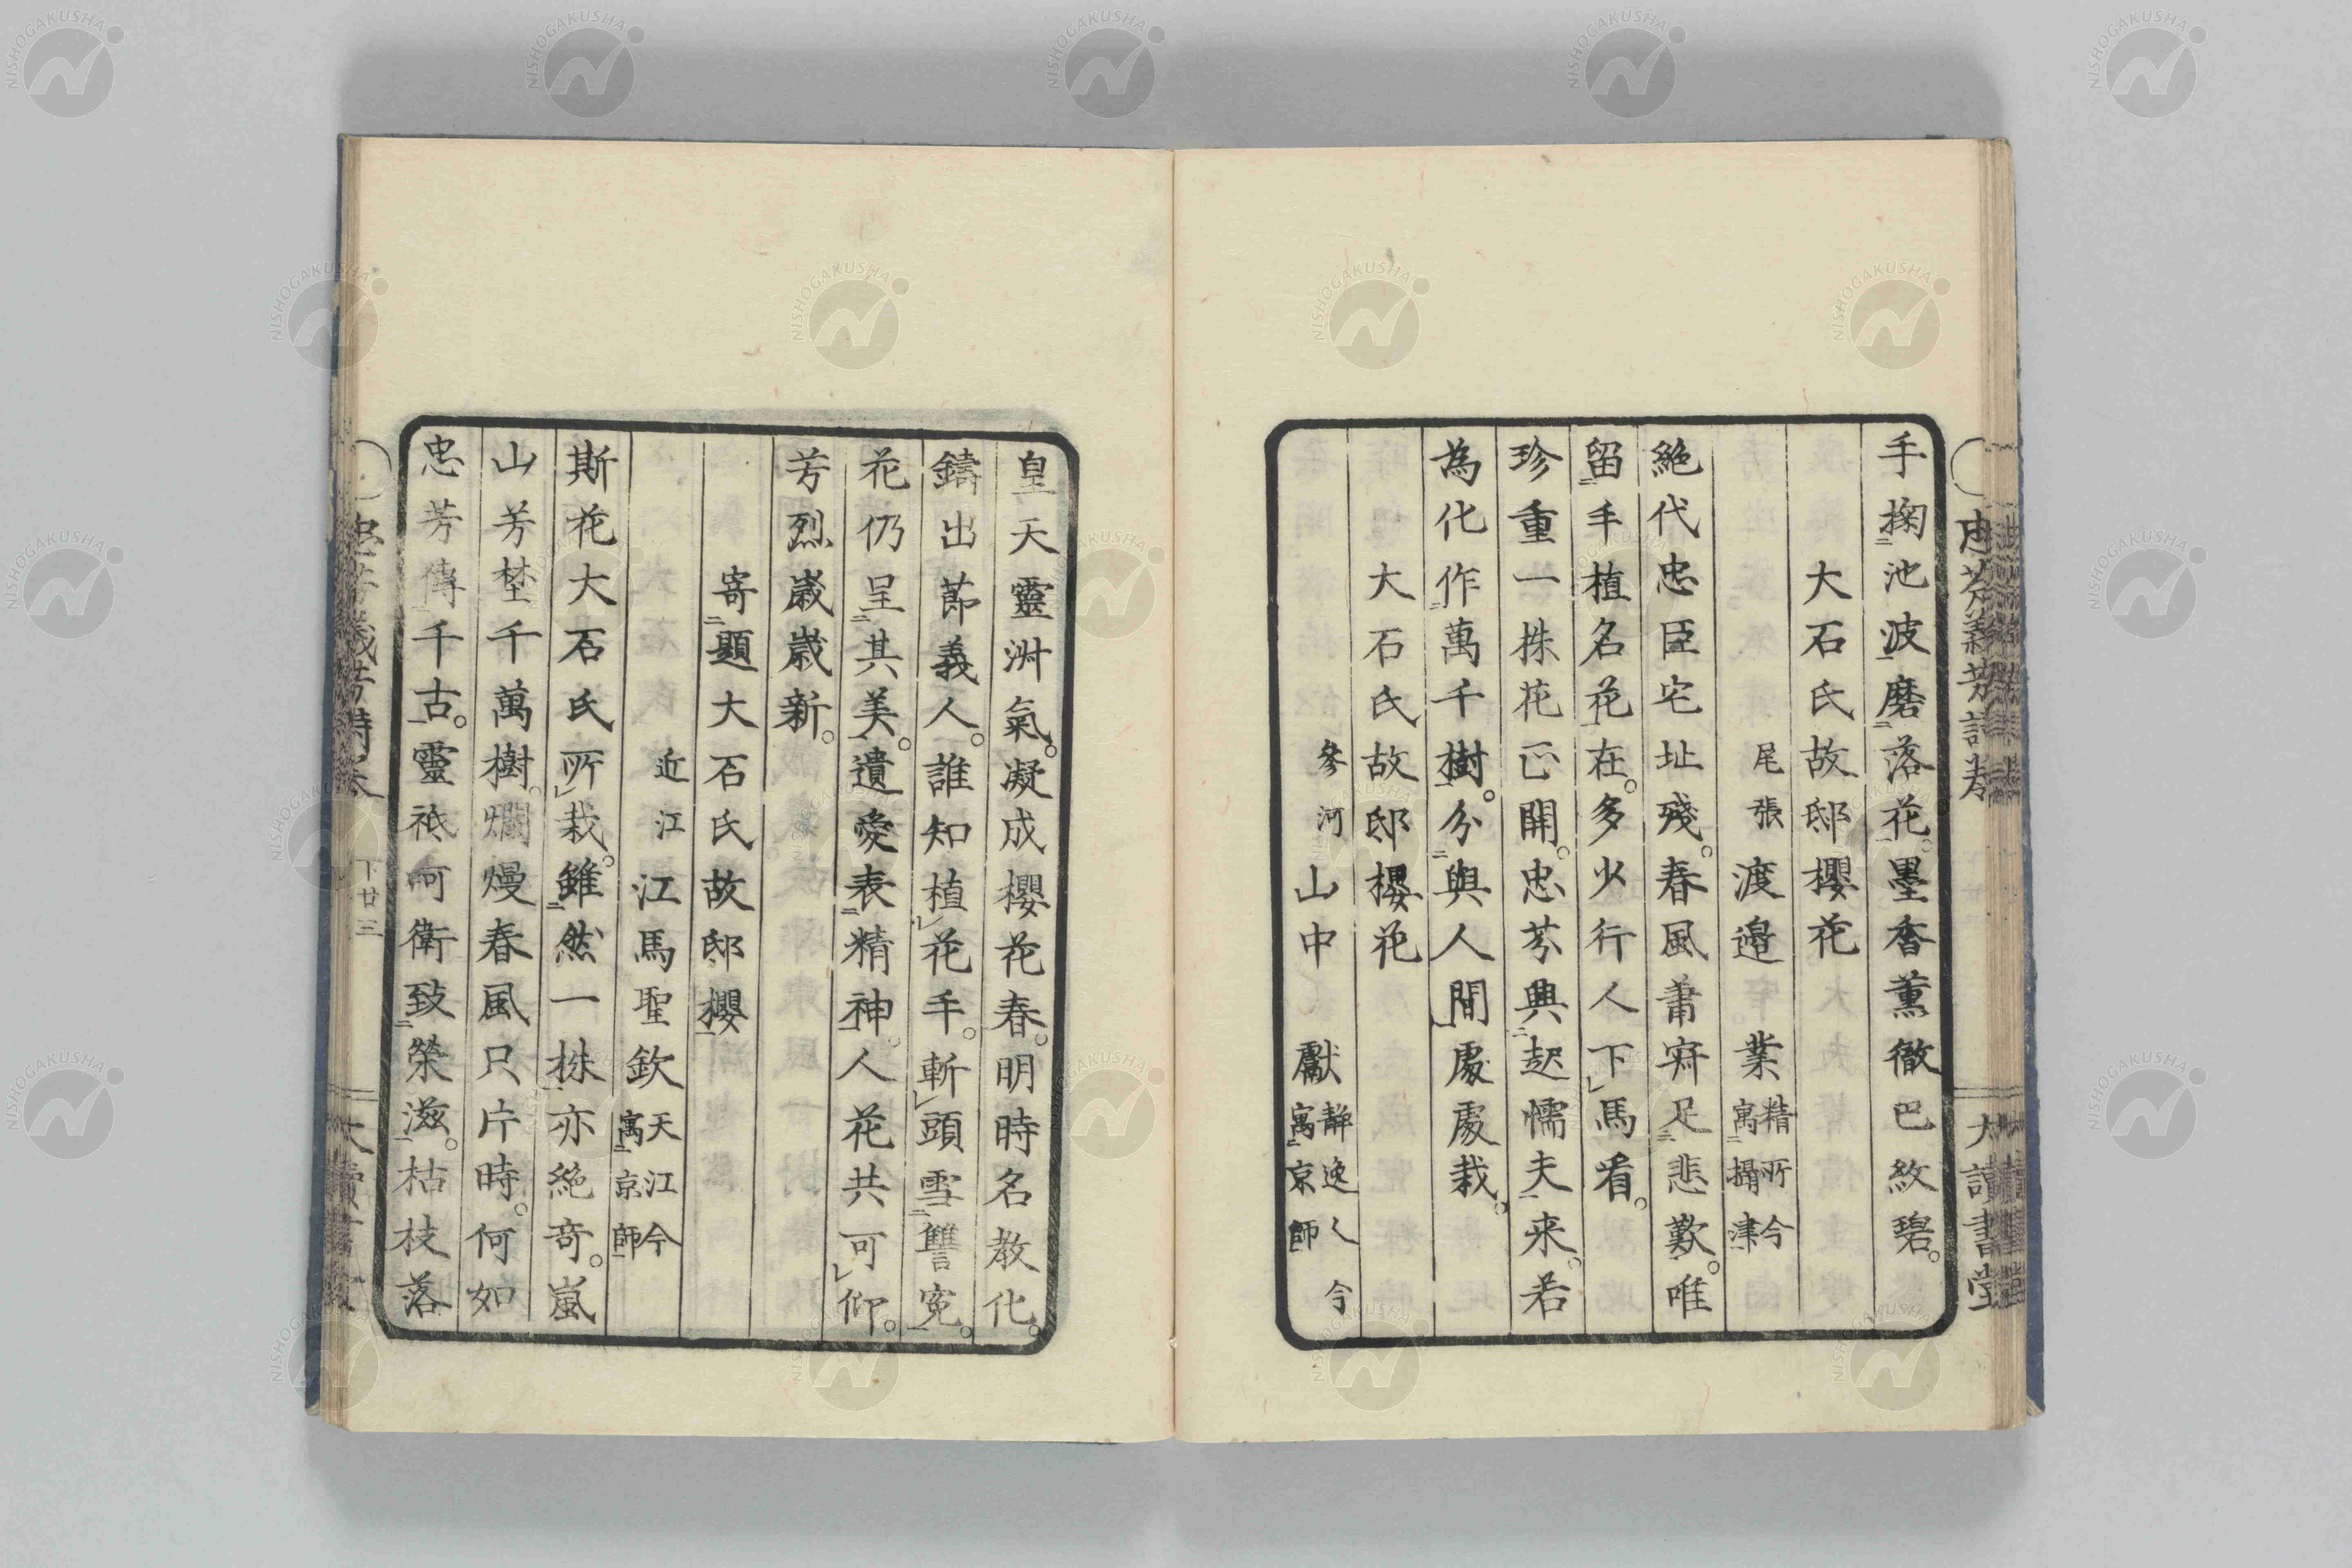 手掬池波磨落花墨香薰徹巴紋碧。
大石氏故邸櫻花
尾張 渡邉 業 精所今寓攝津
絶代忠臣宅址殘。春風肅寂足悲歎。唯
留手植名花在。多少行人下馬看。
珍重一株花已開。忠芬興起懦夫来。若
為化作萬千樹。分與人間處處栽。
大石氏故邸櫻花
參河 山中 獻 静逸人今寓京師
皇天靈淋氣。凝成櫻花春。明時名教化。
鑄出節義人。誰知植花手。斬頭雪讐寃。
花仍呈其美。遺愛表精神。人花共可仰。
芳烈歳歳新。
寄題大石氏故邸櫻
近江 江馬聖欽 天江今寓京師
斯花大石氏所栽。雖然一株亦絶奇。嵐
山芳埜千萬樹。爛熳春風只片時。何如
忠芳傳千古。靈祇呵衛致榮滋。枯枝落
下廿三
大讀書堂
NISHOGAKUSHA